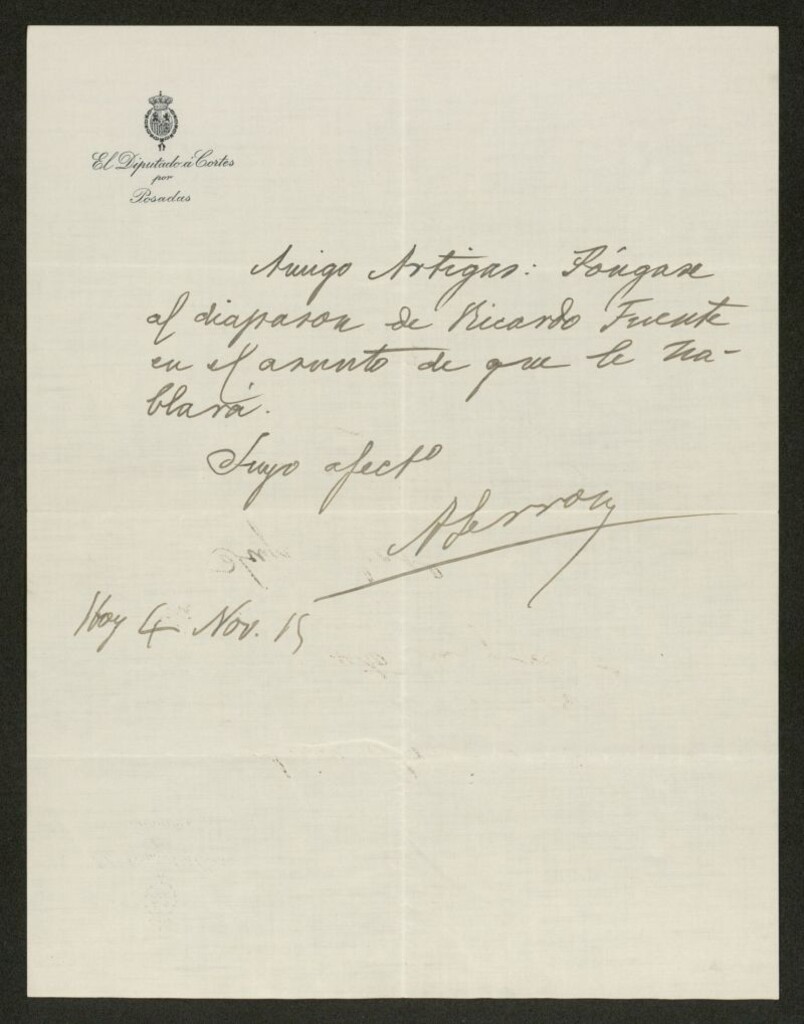 El Diputado á Cortes
por
Posadas
Amigo Artigas: Póngase
al diapason de Ricardo Fuente
en el asunto de que le ha-
blará.
Suyo afectº
Hoy 4 Nov. 15